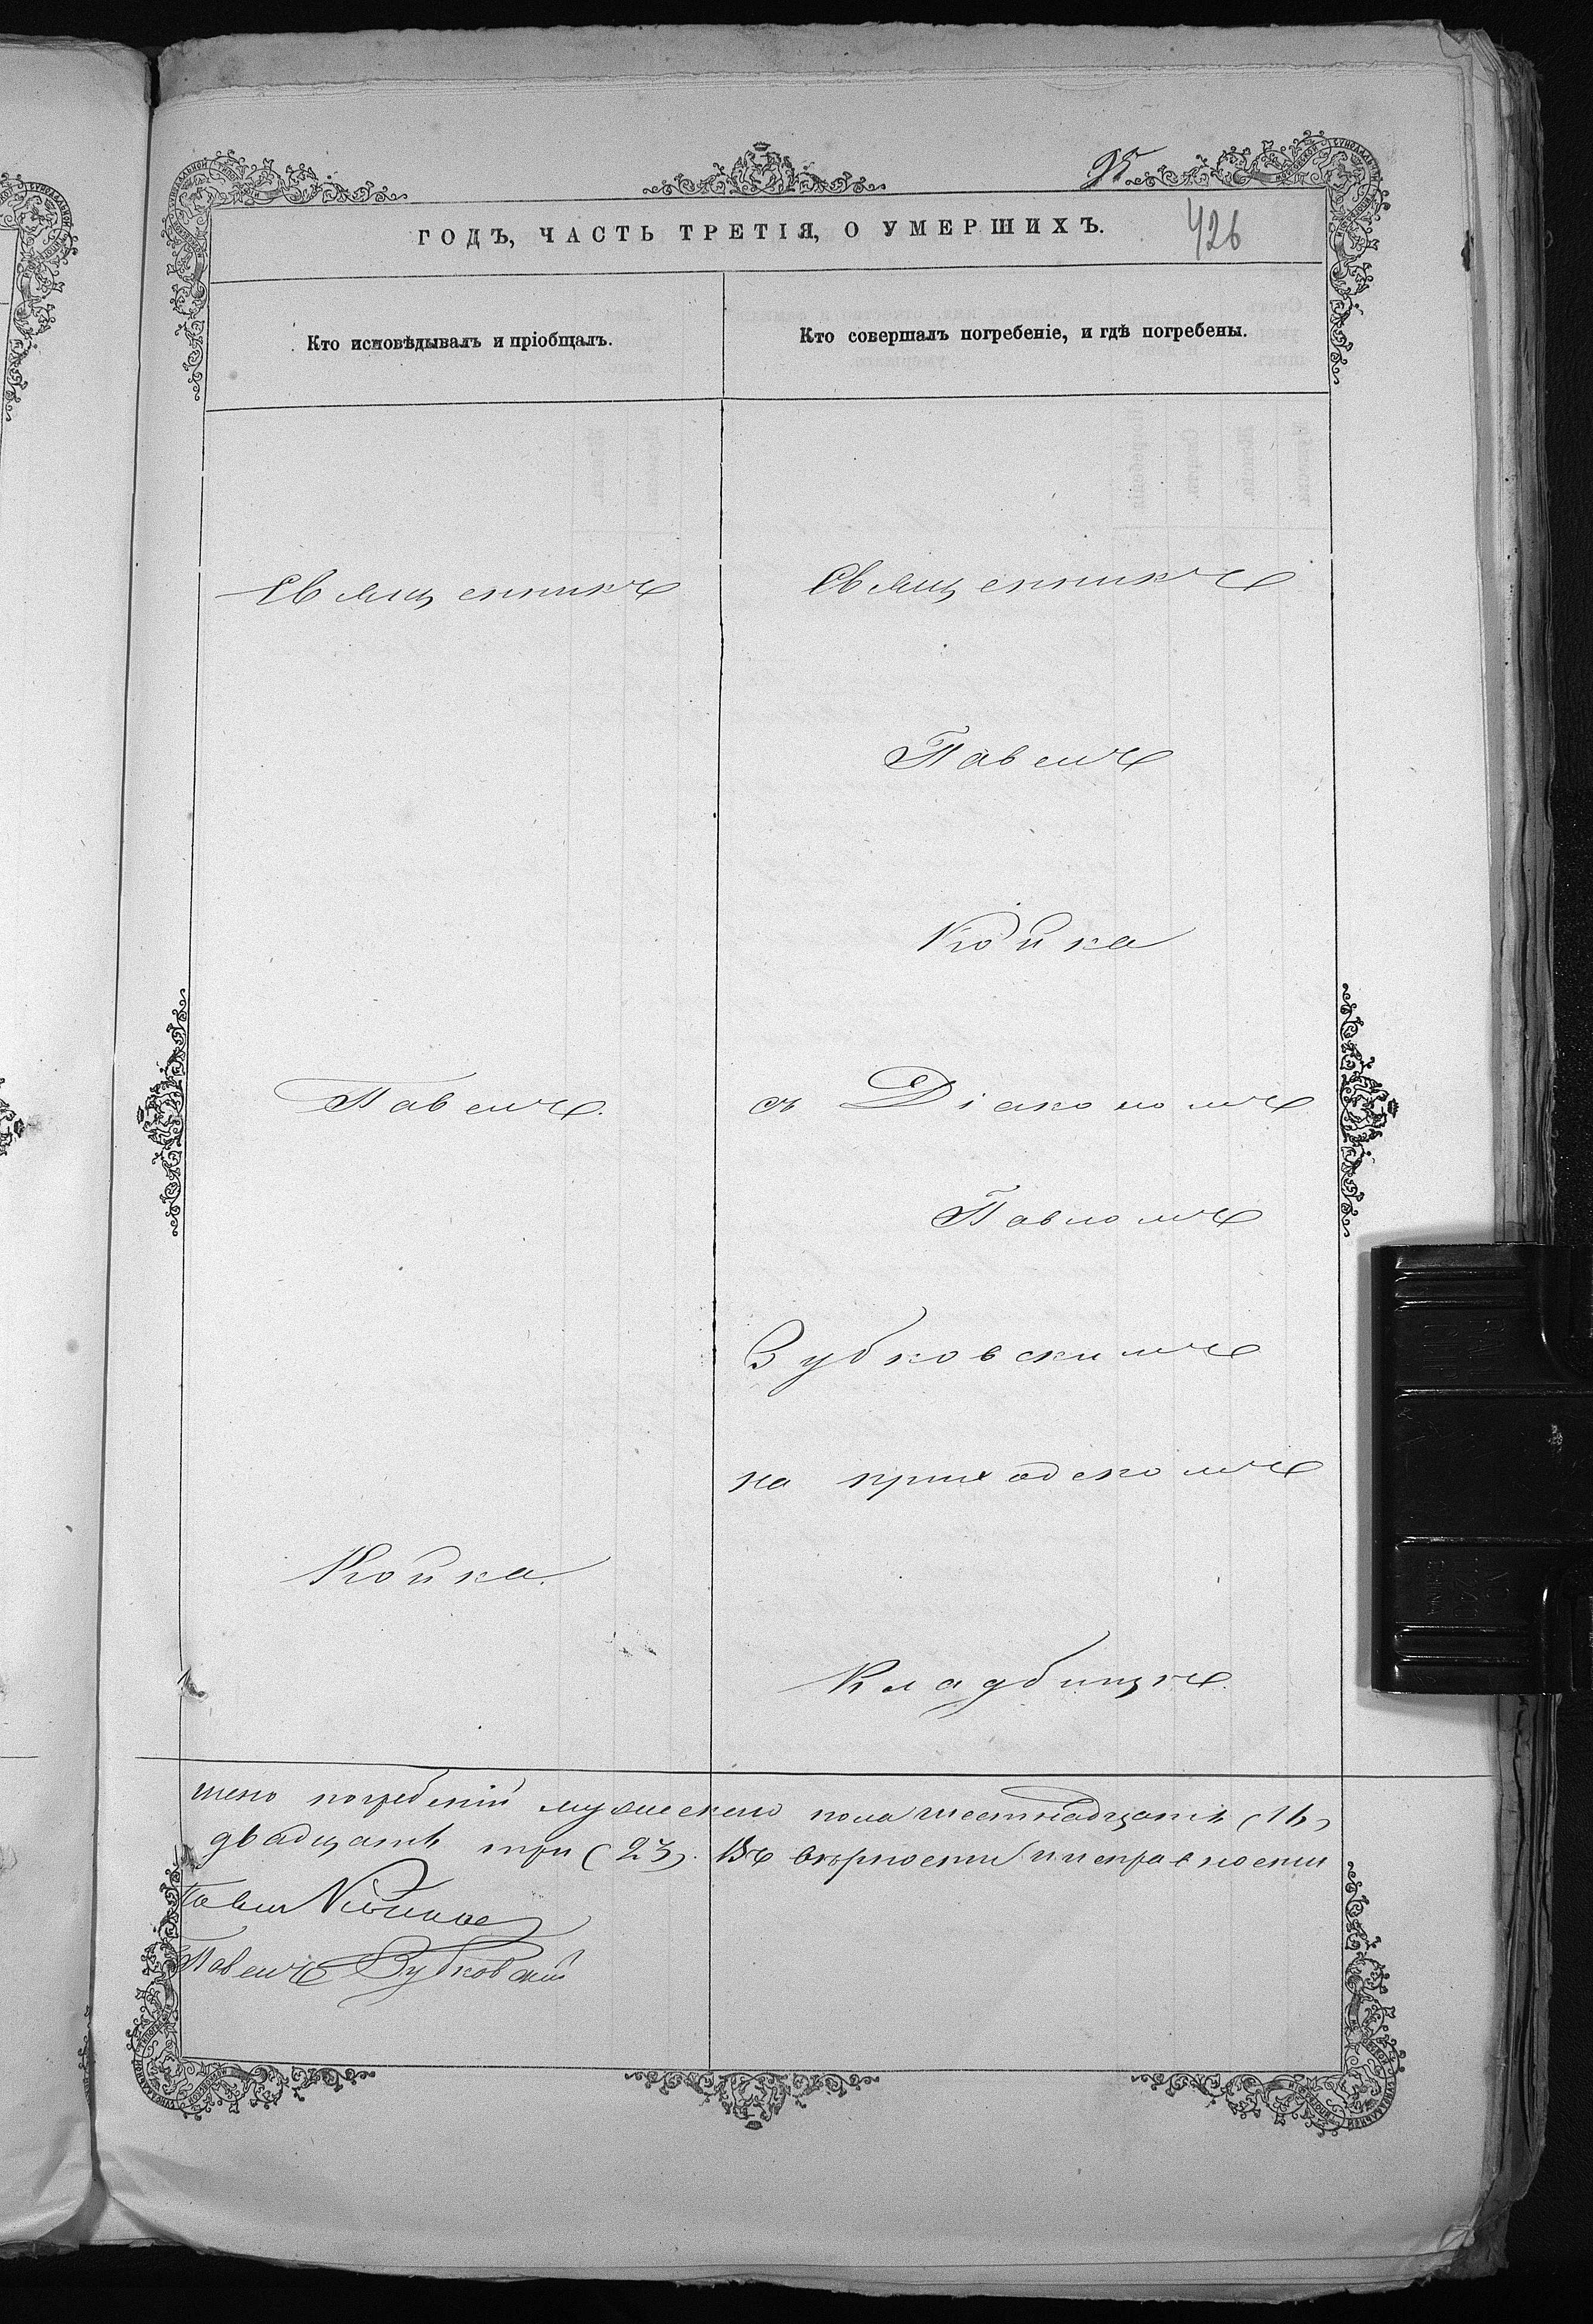 95
ГОДЪ, ЧАСТЬ ТРЕТІЯ, О УМЕРШИХЪ.
426
Кто исповѣдывалъ и пріобщалъ.
Кто совершалъ погребеніе, и гдѣ погребены.
Священникъ
Павелъ
Койка.
Священникъ
Павелъ
Койка
съ Діакономъ
Павломъ
Зубковскимъ
на приходскомъ
Кладбищѣ.
шено погребеній мужескаго пола шестнадцать (16)
двадцать три (23). Въ вѣрности и исправности
Павел Койка
Павелъ Зубковскій